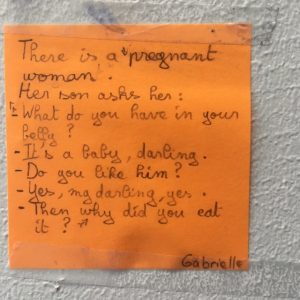 There is a pregnant
woman.
Her son asks her:
- What do you have in your
belly?
- It's a baby, darling.
- Do you like him?
- Yes, my darling, yes.
- Then why did you eat
it?
Gabrielle